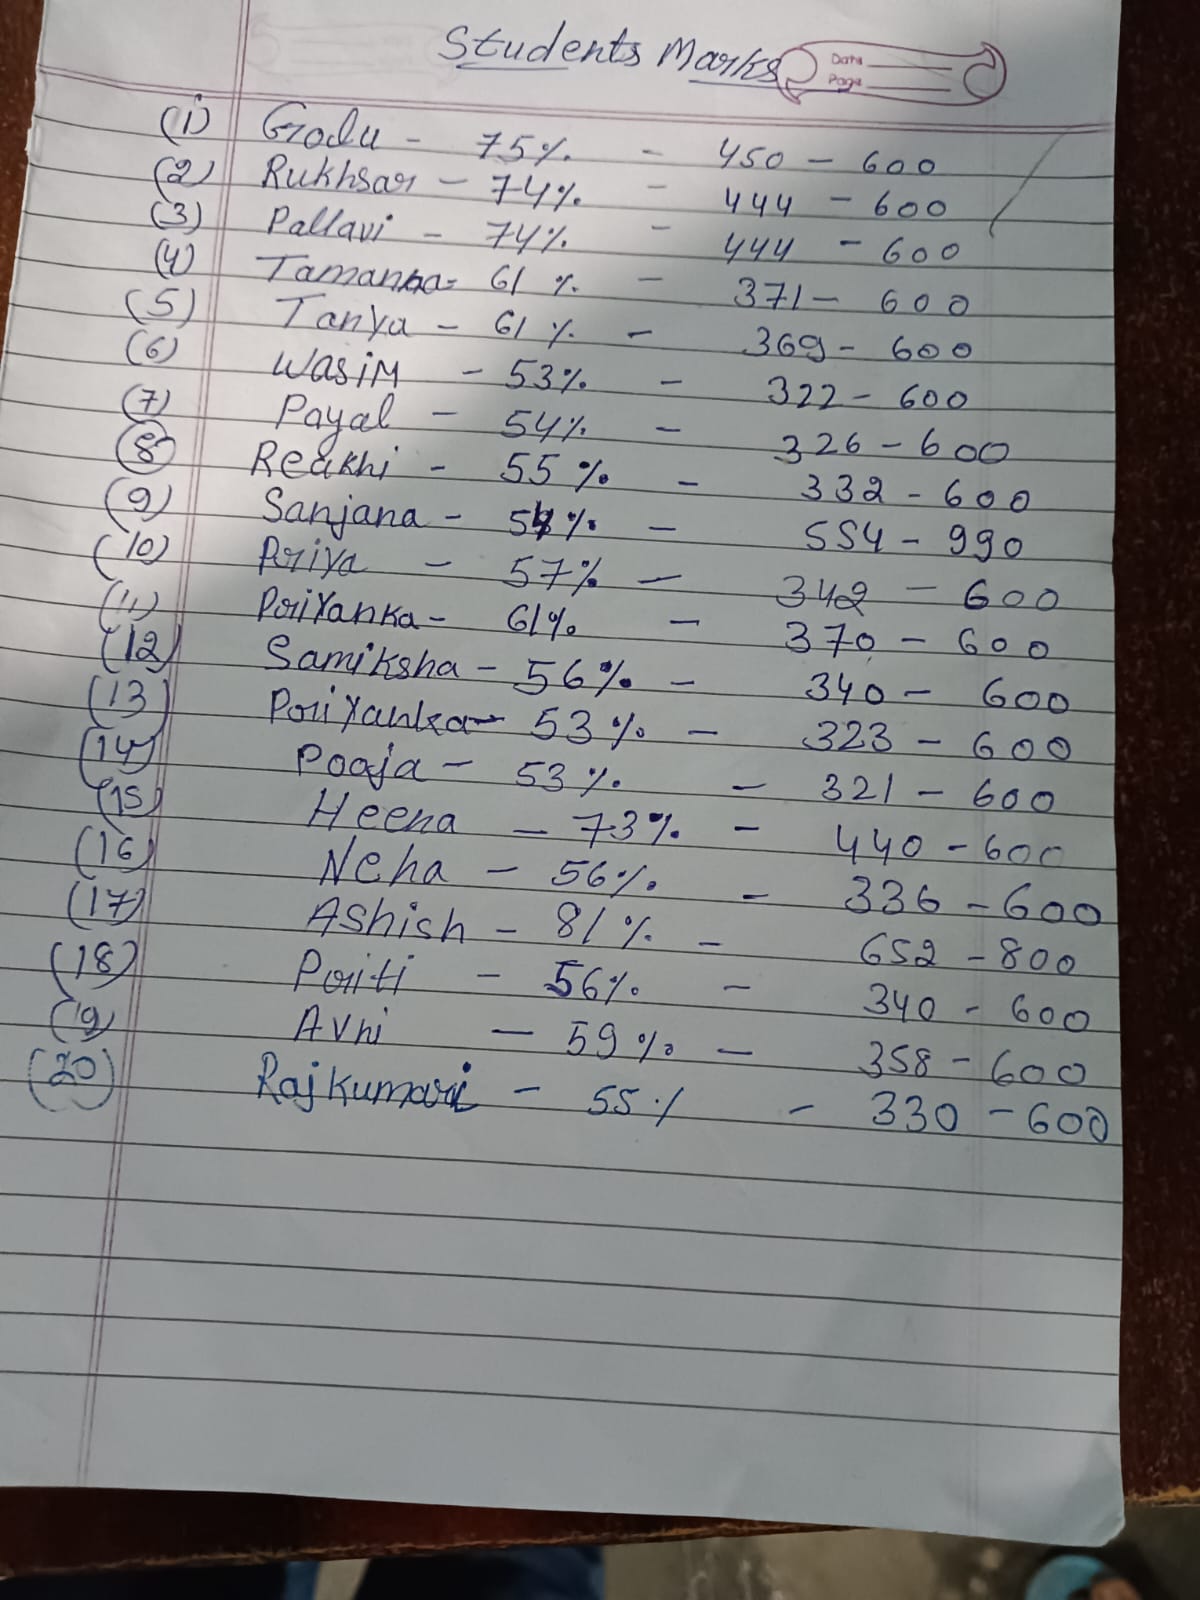 Students Marks
Date
Page
(1) Godu - 75% - 450 - 600
(2) Rukhsar - 74% - 444 - 600
(3) Pallavi - 74% - 444 - 600
(4) Tamanna - 61% - 371 - 600
(5) Tanya - 61% - 369 - 600
(6) Wasim - 53% - 322 - 600
(7) Payal - 54% - 326 - 600
(8) Reakhi - 55% - 332 - 600
(9) Sanjana - % - 554 - 990
(10) Priya - 57% - 342 - 600
(11) Priyanka - 61% - 370 - 600
(12) Samiksha - 56% - 340 - 600
(13) Priyanka - 53% - 323 - 600
(14) Pooja - 53% - 321 - 600
(15) Heena - 73% - 440 - 600
(16) Neha - 56% - 336 - 600
(17) Ashish - 81% - 652 - 800
(18) Priti - 56% - 340 - 600
(19) Avni - 59% - 358 - 600
(20) Rajkumari - 55% - 330 - 600